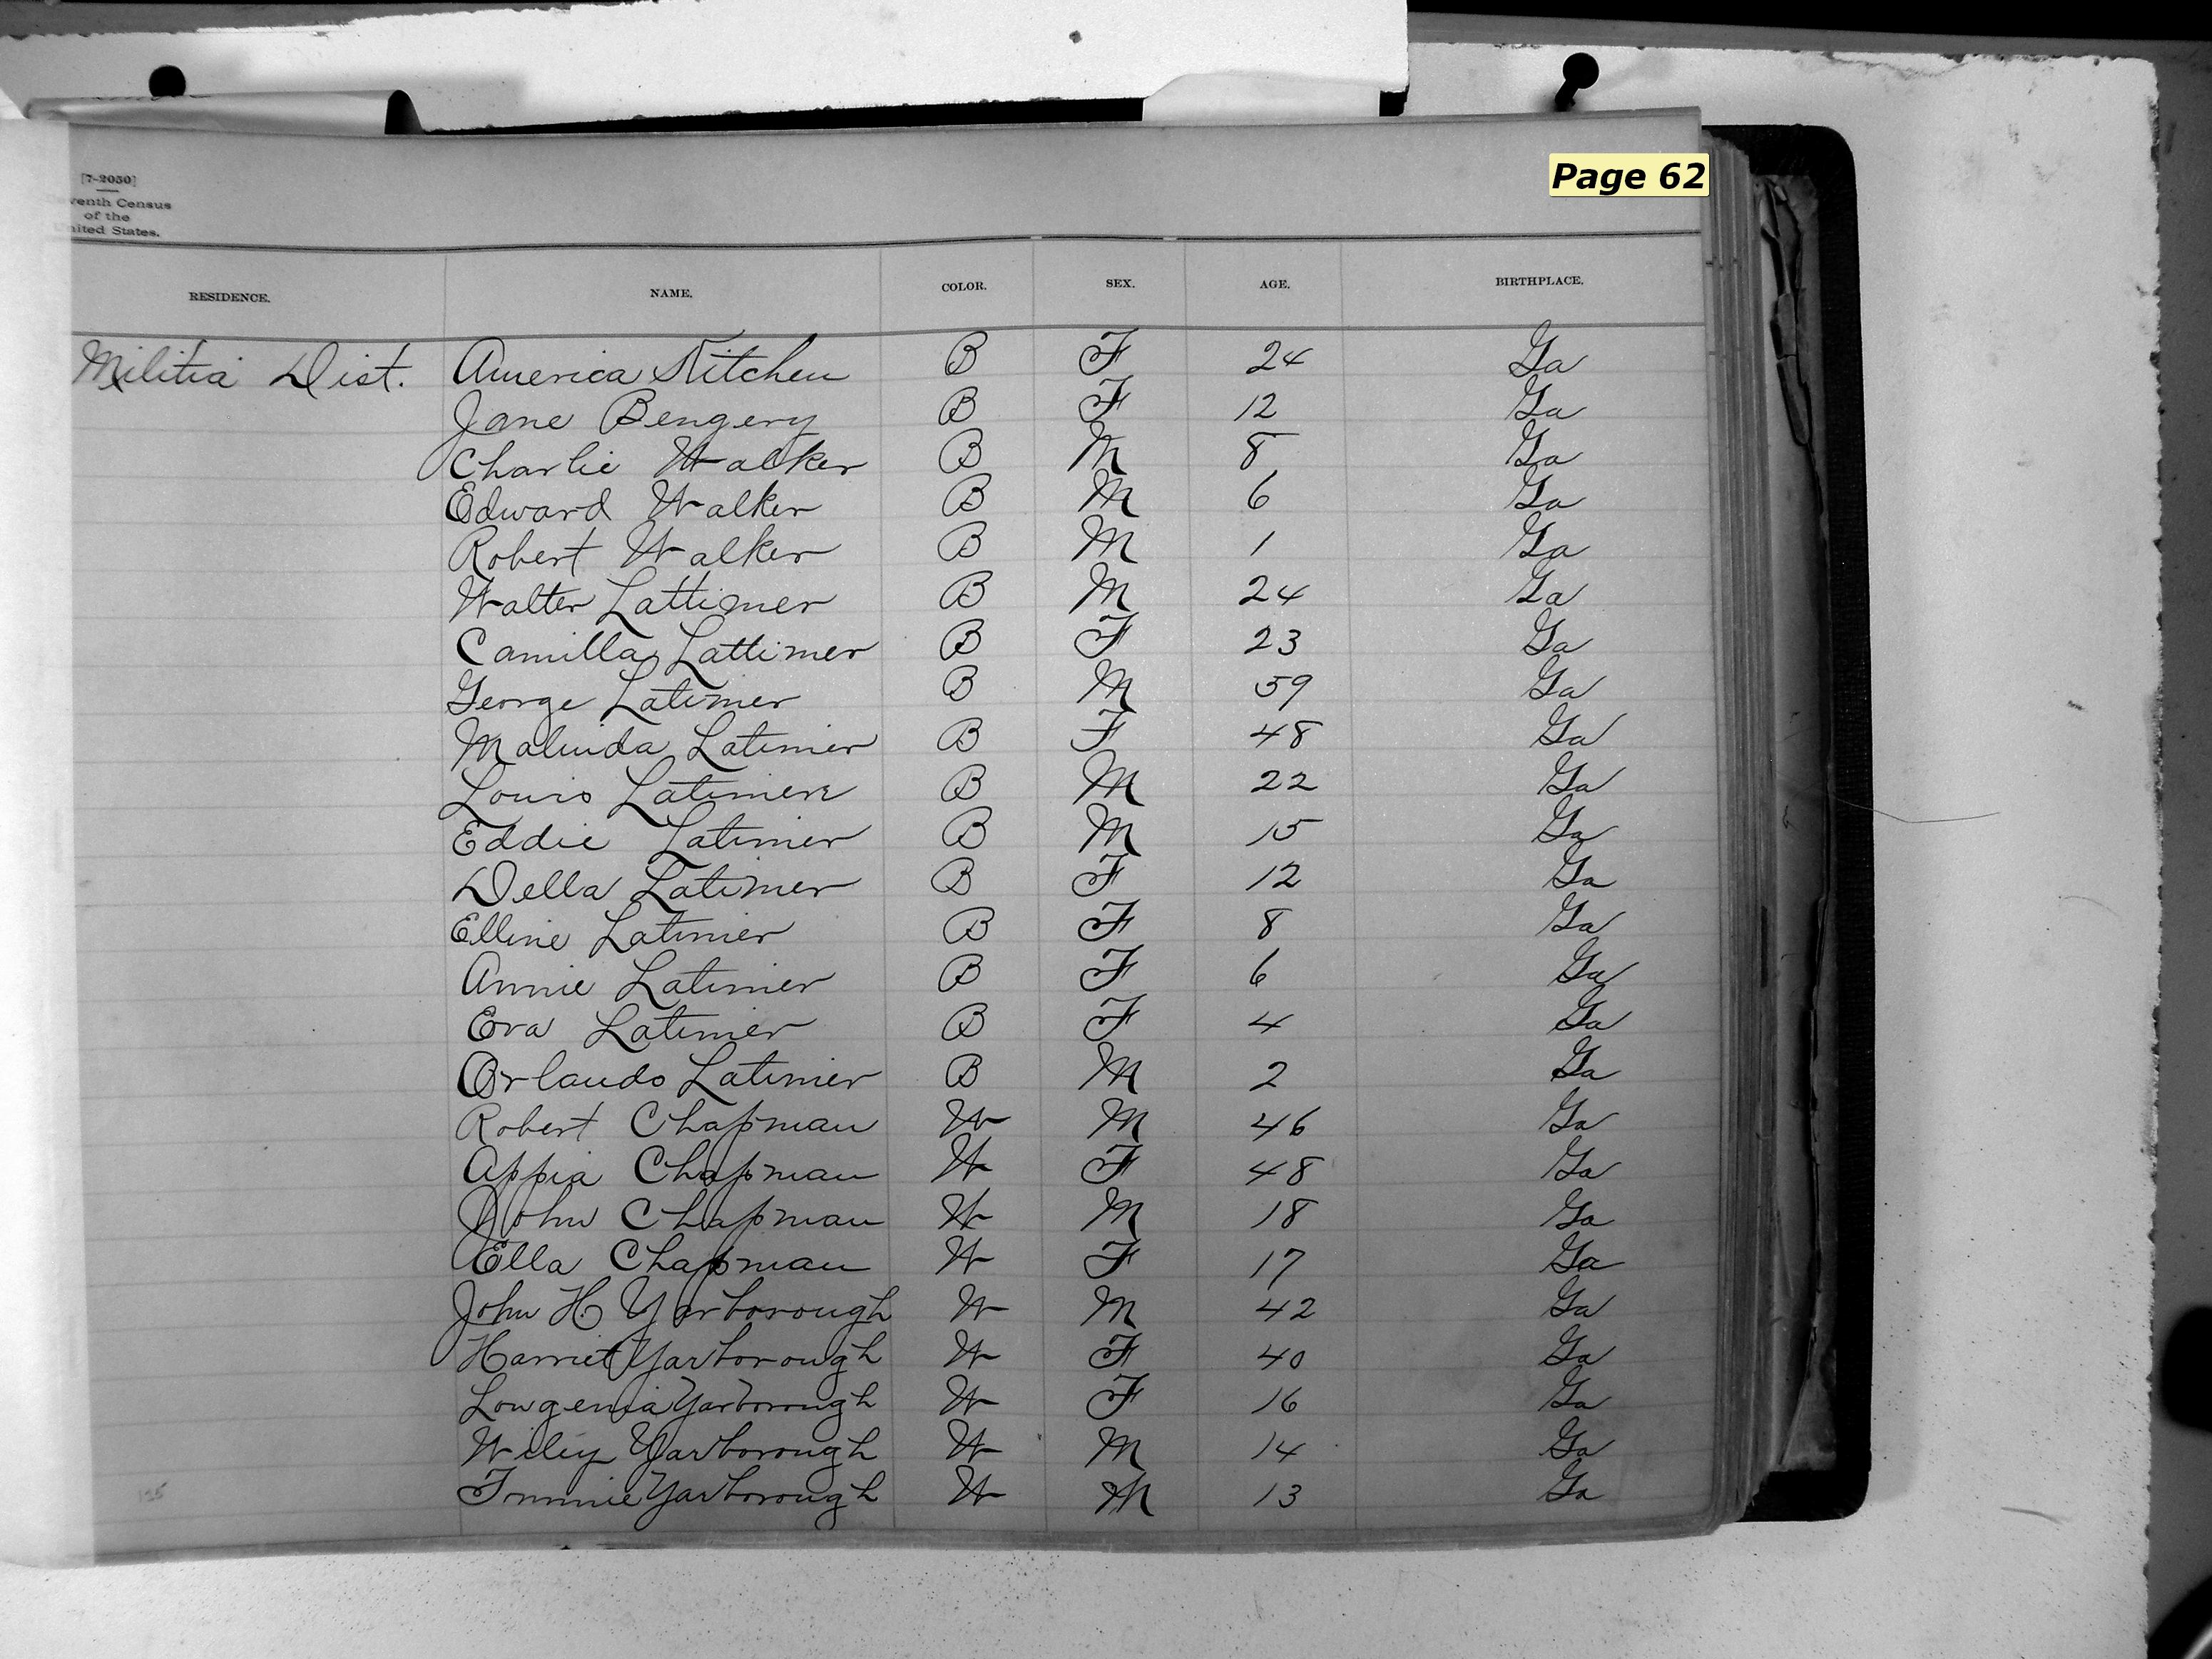 Page 62
[7-2050]
venth Census
of the
nited States.
RESIDENCE. NAME. COLOR. SEX. AGE. BIRTHPLACE.
Militia Dist. America Kitchen B F 24 Ga
Jane Bengery B F 12 Ga
Charlie Walker B M 8 Ga
Edward Walker B M 6 Ga
Robert Walker B M 1 Ga
Walter Lattimer B M 24 Ga
Camilla Lattimer B F 23 Ga
George Latimer B M 59 Ga
Malinda Latimer B F 48 Ga
Louis Latimer B M 22 Ga
Eddie Latimer B M 15 Ga
Della Latimer B F 12 Ga
Elline Latimer B F 8 Ga
Annie Latimer B F 6 Ga
Eva Latimer B F 4 Ga
Orlando Latimer B M 2 Ga
Robert Chapman W M 46 Ga
Appia Chapman W F 48 Ga
John Chapman W M 18 Ga
Ella Chapman W F 17 Ga
John H Yarborough W M 42 Ga
Harriet Yarborough W F 40 Ga
Lougenia Yarborough W F 16 Ga
Wiley Yarborough W M 14 Ga
Yarborough W M 13 Ga